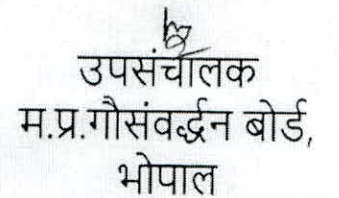 उपसंचालक
म.प्र.गौसंवर्द्धन बोर्ड,
भोपाल